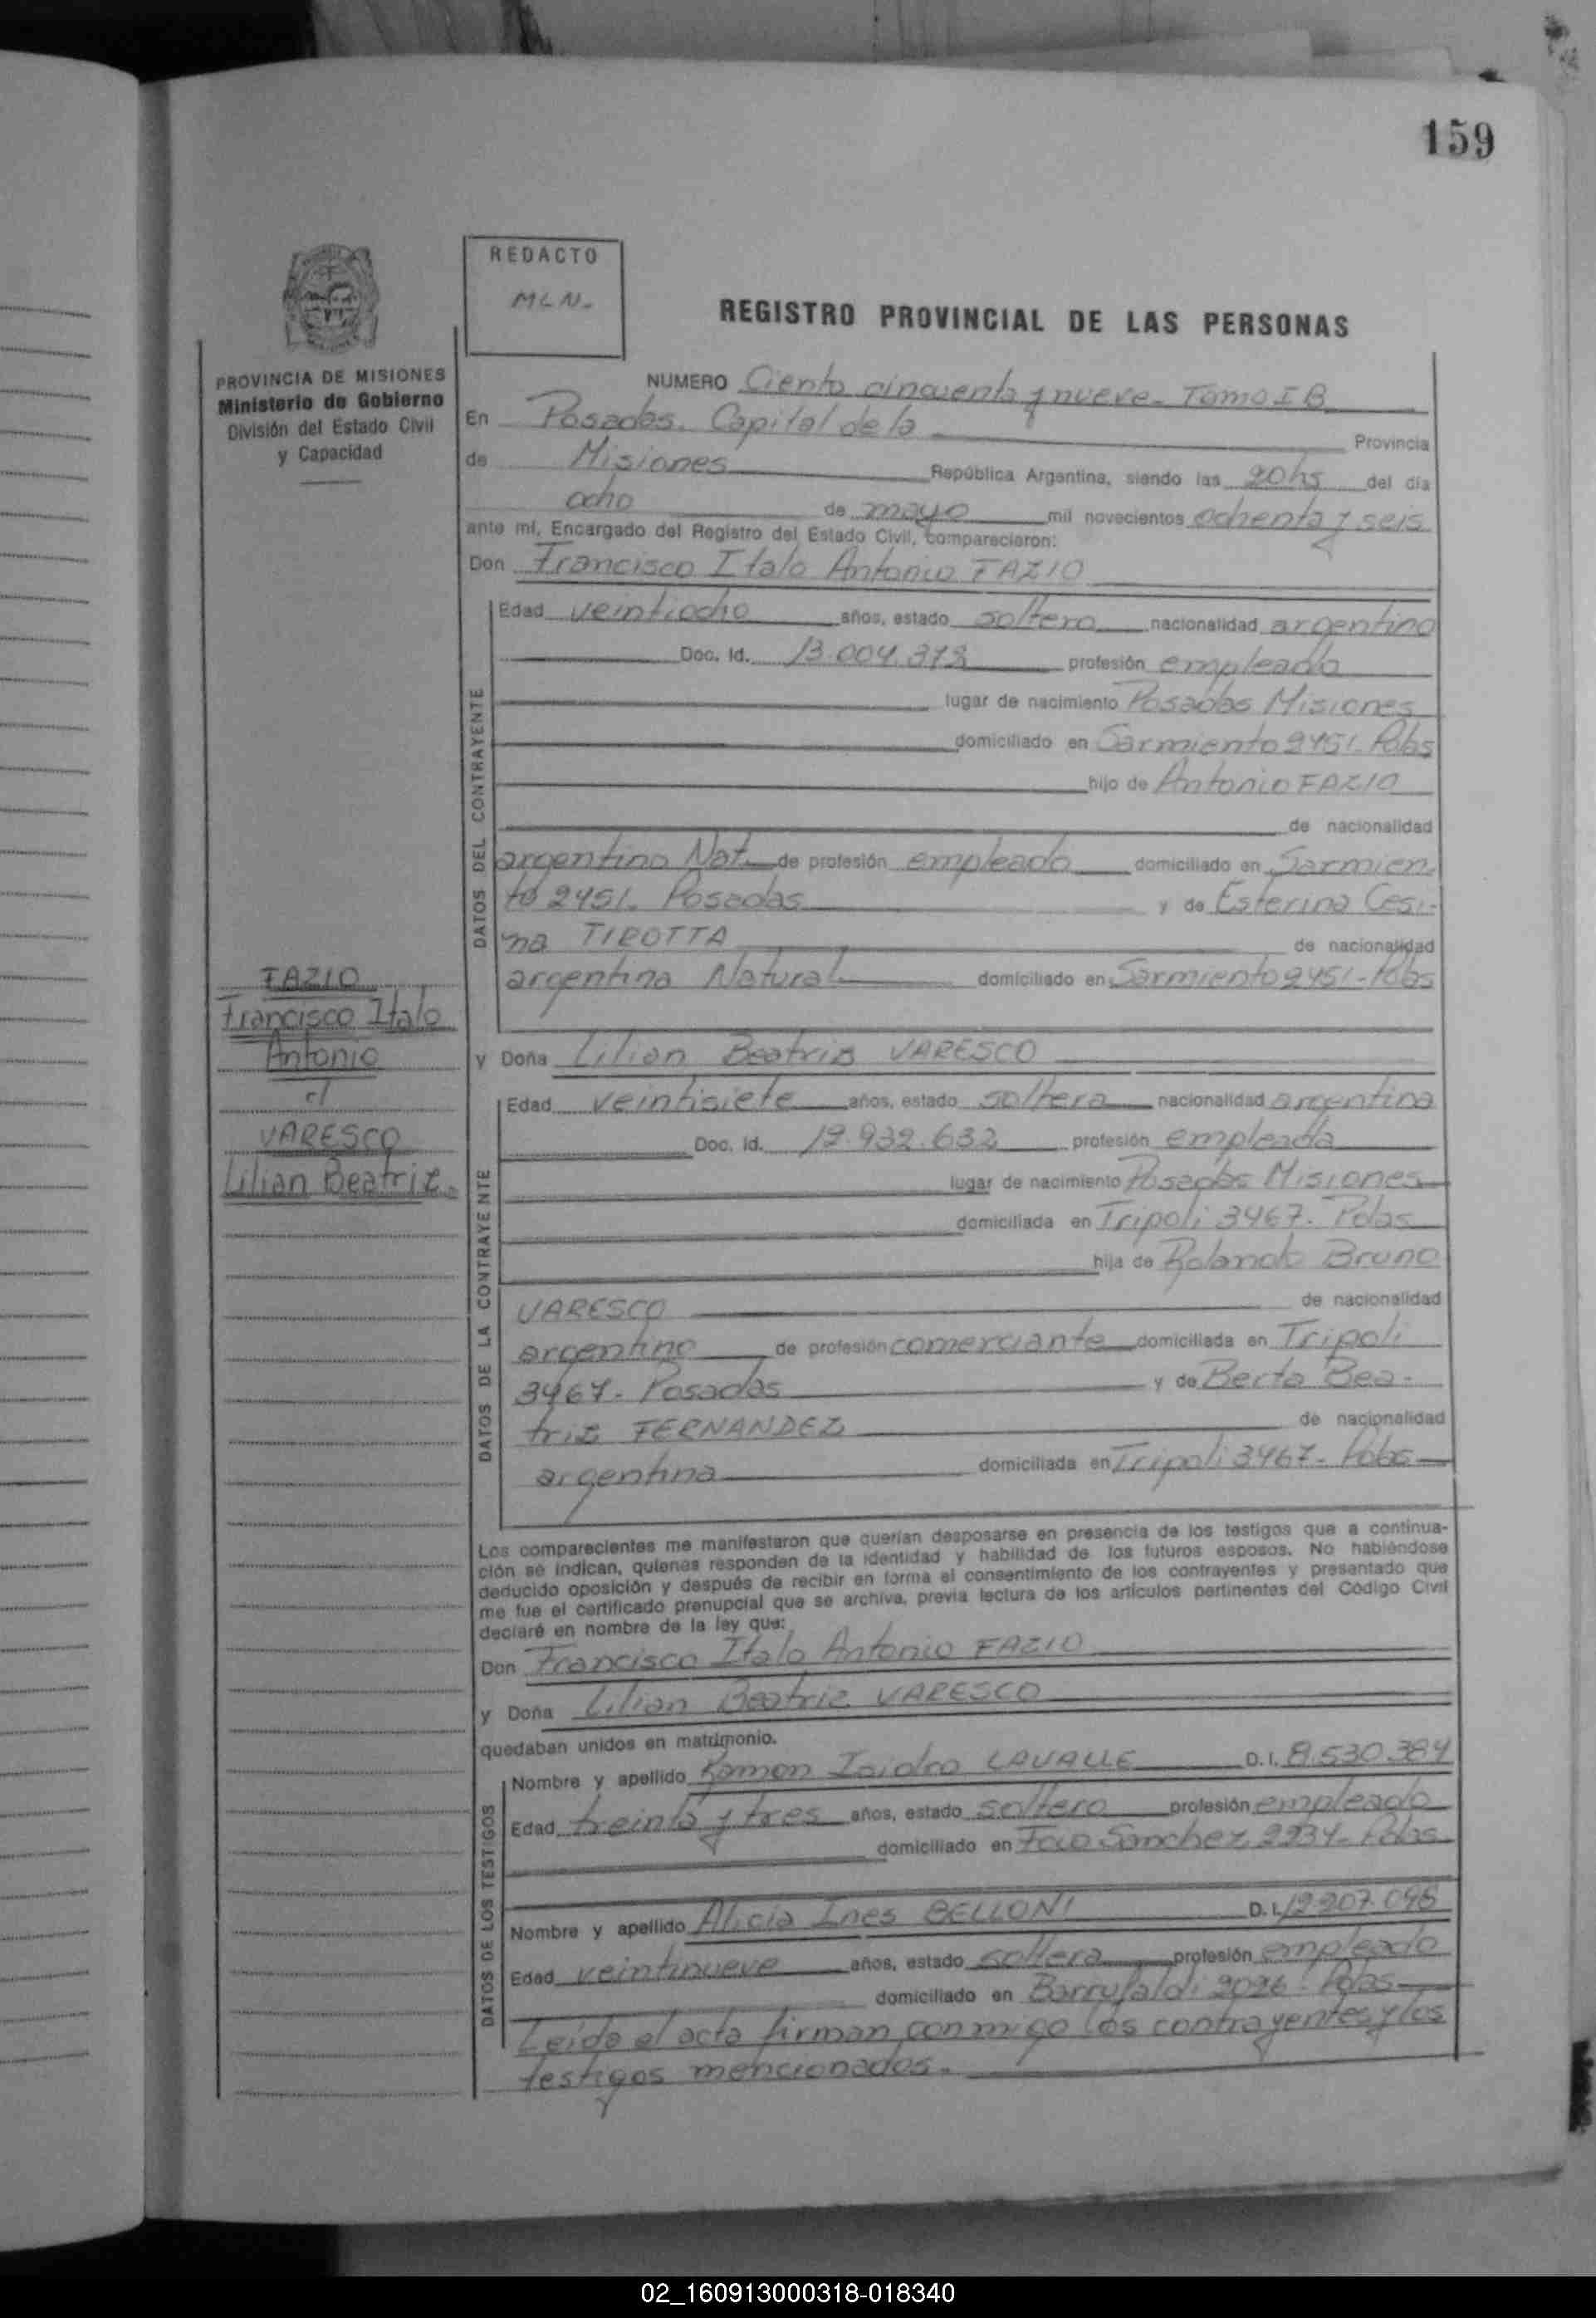 159
REDACTO
MLN.
REGISTRO PROVINCIAL DE LAS PERSONAS
PROVINCIA DE MISIONES
Ministerio de Gobierno
División del Estado Civil
y Capacidad
NUMERO Ciento cincuenta y nueve - Tomo I B
En Posadas. Capital de la Provincia
de Misiones República Argentina, siendo las 20 hs del día
ocho de mayo mil novecientos ochenta y seis
ante mí, Encargado del Registro del Estado Civil, comparecieron:
Don Francisco Italo Antonio FAZIO
DATOS DEL CONTRAYENTE
Edad veintiocho años, estado soltero nacionalidad argentino
Doc. Id. 13.004.373 profesión empleado
lugar de nacimiento Posadas Misiones
domiciliado en Sarmiento 2451. Pdas
hijo de Antonio FAZIO
de nacionalidad
argentino Nat. de profesión empleado domiciliado en Sarmien
to 2451. Posadas y de Esterina Cesi-
na TIROTTA de nacionalidad
argentina Natural domiciliado en Sarmiento 2451 - Pdas
FAZIO
Francisco Italo
Antonio
c/
VARESCO
Lilian Beatriz.
y Doña Lilian Beatriz VARESCO
DATOS DE LA CONTRAYENTE
Edad veintisiete años, estado soltera nacionalidad argentina
Doc. Id. 12.932.632 profesión empleada
lugar de nacimiento Posadas Misiones
domiciliada en Tripoli 3467. Pdas
hija de Rolando Bruno
VARESCO de nacionalidad
argentino de profesión comerciante domiciliada en Tripoli
3467. Posadas y de Berta Bea-
triz FERNANDEZ de nacionalidad
argentina domiciliada en Tripoli 3467. Pdas
Los comparecientes me manifestaron que querían desposarse en presencia de los testigos que a continua-
ción se indican, quienes responden de la identidad y habilidad de los futuros esposos. No habiéndose
deducido oposición y después de recibir en forma el consentimiento de los contrayentes y presentado que
me fue el certificado prenupcial que se archiva, previa lectura de los artículos pertinentes del Código Civil
declaré en nombre de la ley que:
Don Francisco Italo Antonio FAZIO
y Doña Lilian Beatriz VARESCO
quedaban unidos en matrimonio.
DATOS DE LOS TESTIGOS
Nombre y apellido Ramon Isidro LAVALLE D.I. 8.530.384
Edad treinta y tres años, estado soltero profesión empleado
domiciliado en Fco Sanchez 2234 - Pdas
Nombre y apellido Alicia Ines BELLONI D.I. 12.207.098
Edad veintinueve años, estado soltera profesión empleado
domiciliado en Barrufaldi 2026. Pdas
Leida el acta firman conmigo los contrayentes y los
testigos mencionados.
02_160913000318-018340